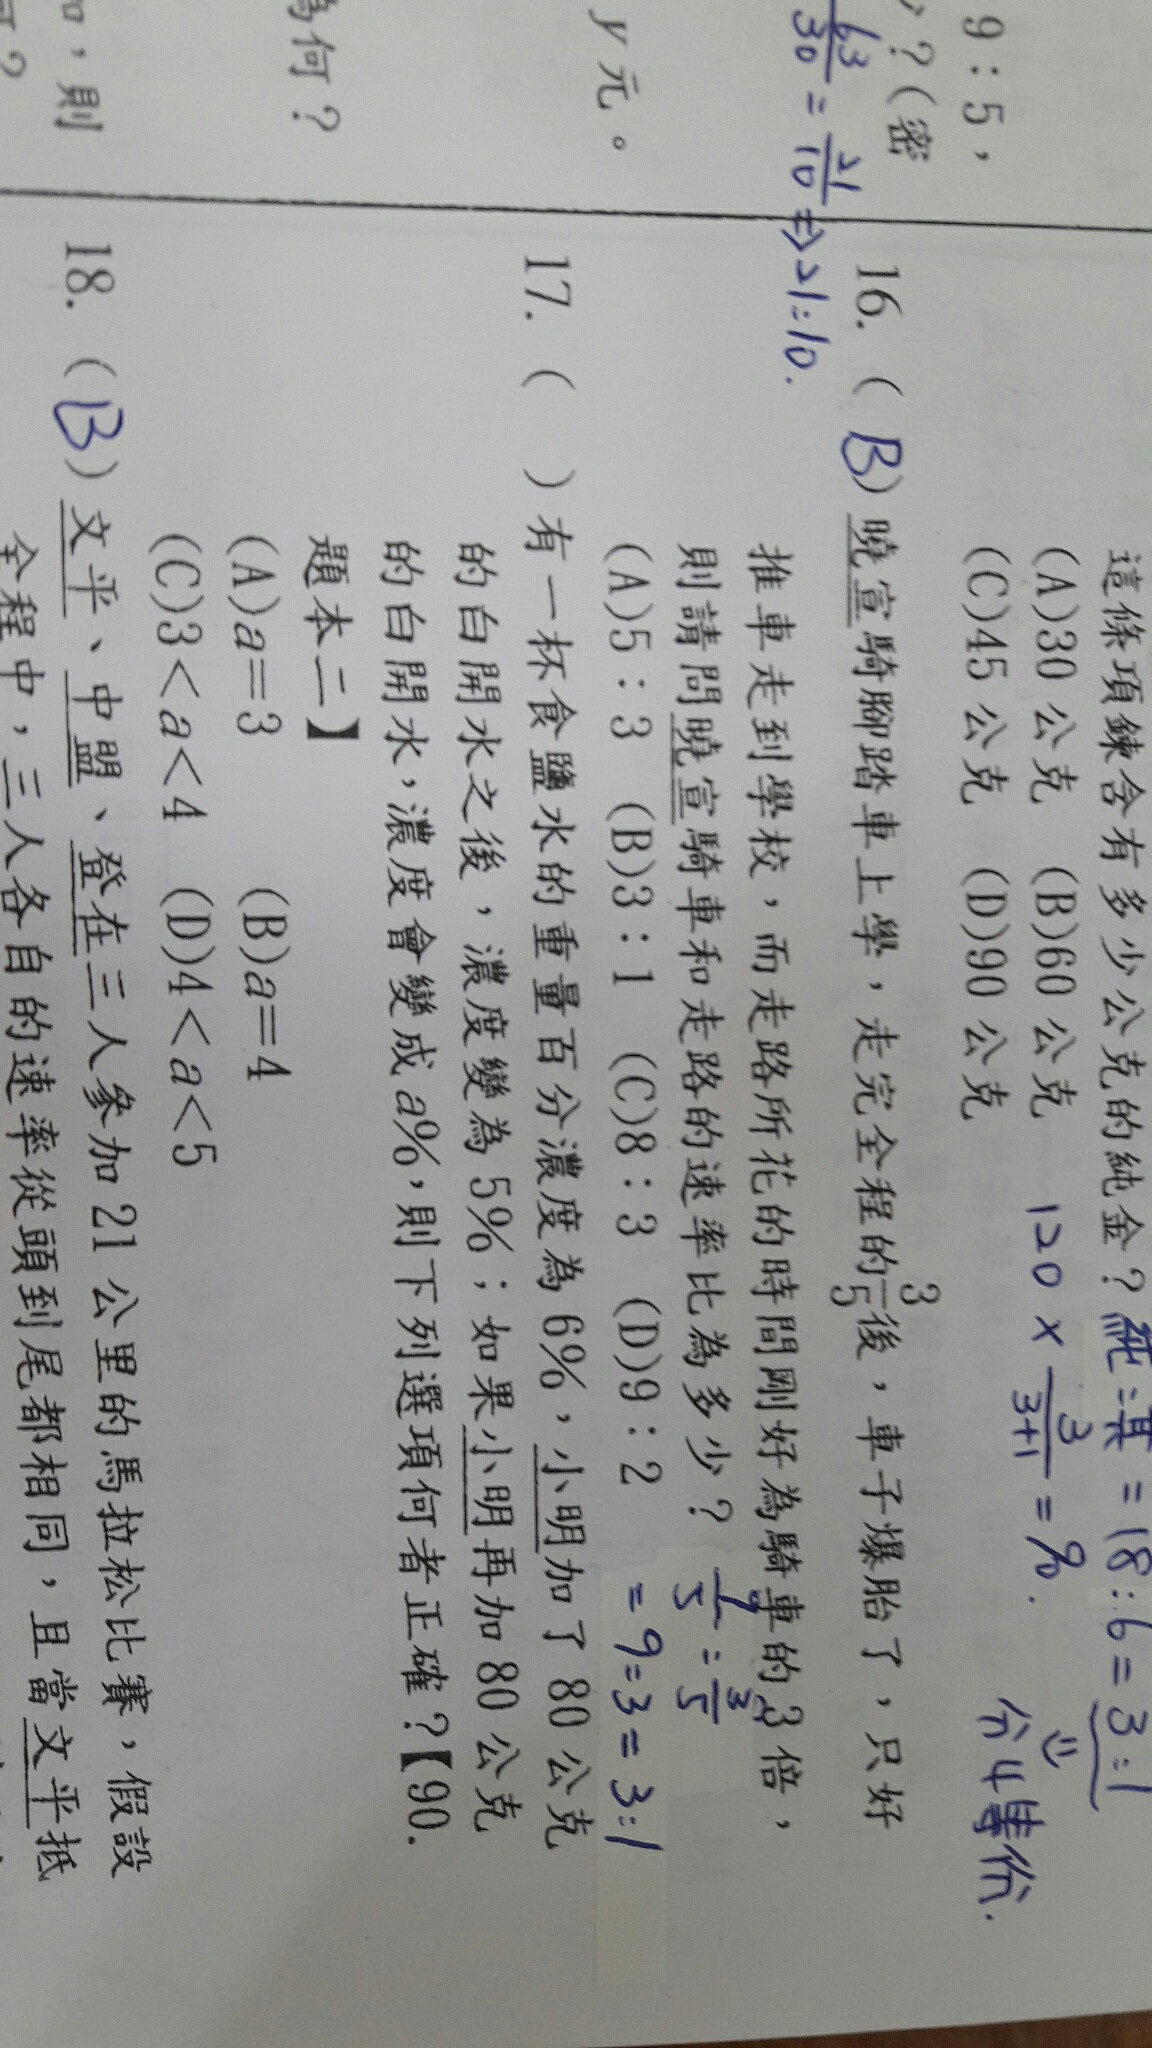 9：5，
？(密
63/30 = 21/10 ⇒ 21:10.
y 元。
為何？
，則
？
這條項鍊含有多少公克的純金？ 純:其 = 18:6 = 3:1
(A)30 公克 (B)60 公克 120 × 3/3+1 = 90.
(C)45 公克 (D)90 公克 分4等份.
16. ( B ) 曉宣騎腳踏車上學，走完全程的3/5後，車子爆胎了，只好
推車走到學校，而走路所花的時間剛好為騎車的 3 倍，
則請問曉宣騎車和走路的速率比為多少？
(A)5：3 (B)3：1 (C)8：3 (D)9：2
= 9:3 = 3:1
17. ( ) 有一杯食鹽水的重量百分濃度為 6%，小明加了 80 公克
的白開水之後，濃度變為 5%；如果小明再加 80 公克
的白開水，濃度會變成 a%，則下列選項何者正確？【90.
題本二】
(A)a=3 (B)a=4
(C)3<a<4 (D)4<a<5
18. ( B ) 文平、中盟、登在三人參加 21 公里的馬拉松比賽，假設
全程中，三人各自的速率從頭到尾都相同，且當文平抵